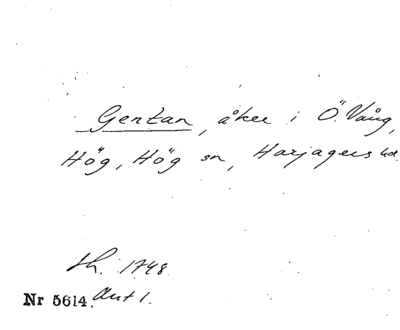 Gertan, åker i Ö. Vång,
Hög, Hög sn, Harjagers hd.
Lh. 1748.
Nr 5614. Akt 1.